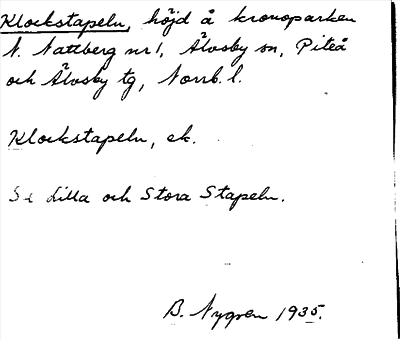 Klockstapeln, höjd å kronoparken
N. Nattberg nr 1, Älvsby sn, Piteå
och Älvsby tg, Norrb. l.
Klockstapeln, ek.
Se Lilla och Stora Stapeln.
B. Nygren 1935.